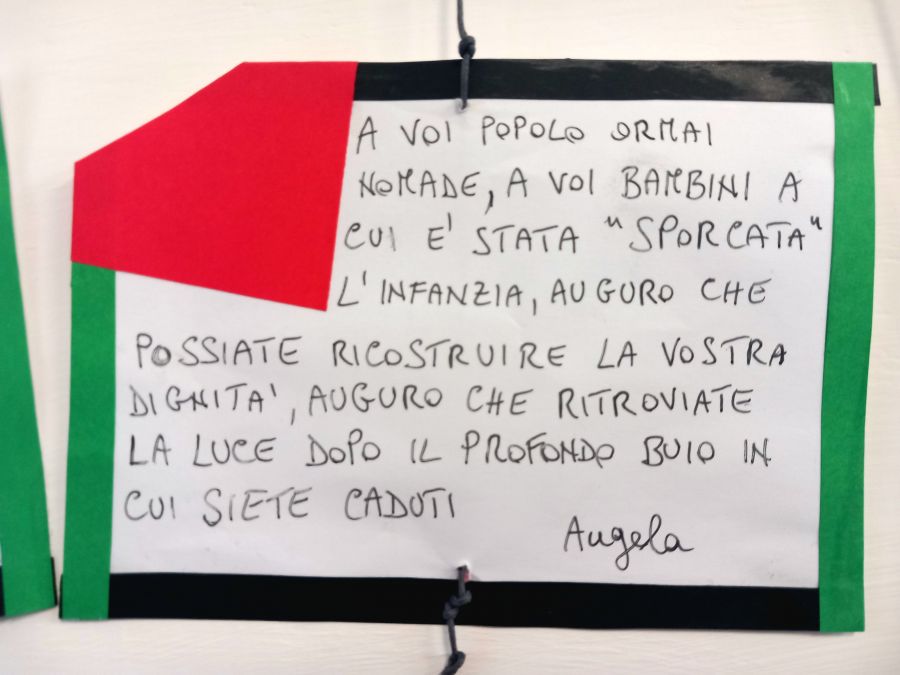 A VOI POPOLO ORMAI
NOMADE, A VOI BAMBINI A
CUI E' STATA "SPORCATA"
L'INFANZIA, AUGURO CHE
POSSIATE RICOSTRUIRE LA VOSTRA
DIGNITA', AUGURO CHE RITROVIATE
LA LUCE DOPO IL PROFONDO BUIO IN
CUI SIETE CADUTI
Angela